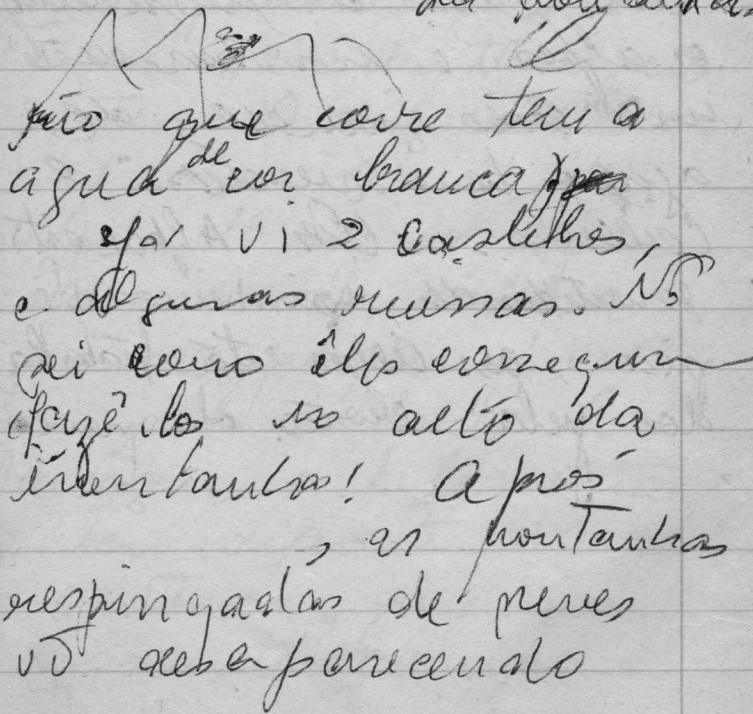 rio que corre tem a
agua de cor branca
Ja' vi 2 castelhos,
e algumas ruinas. Nõ
sei como êles conseguem
fazê-los no alto da
montanha! Após
, as montanhas
respingadas de neves
võ desaparecendo